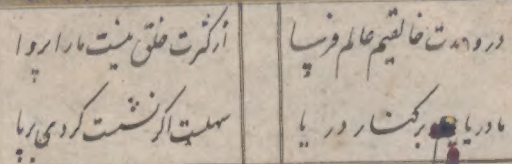 در وحدت خالقیم عالم فرسا
از کثرت خلق نیست ما را پروا
ما دریاییم بر کنار دریا
سهلست اگر نشست گردی بر ما